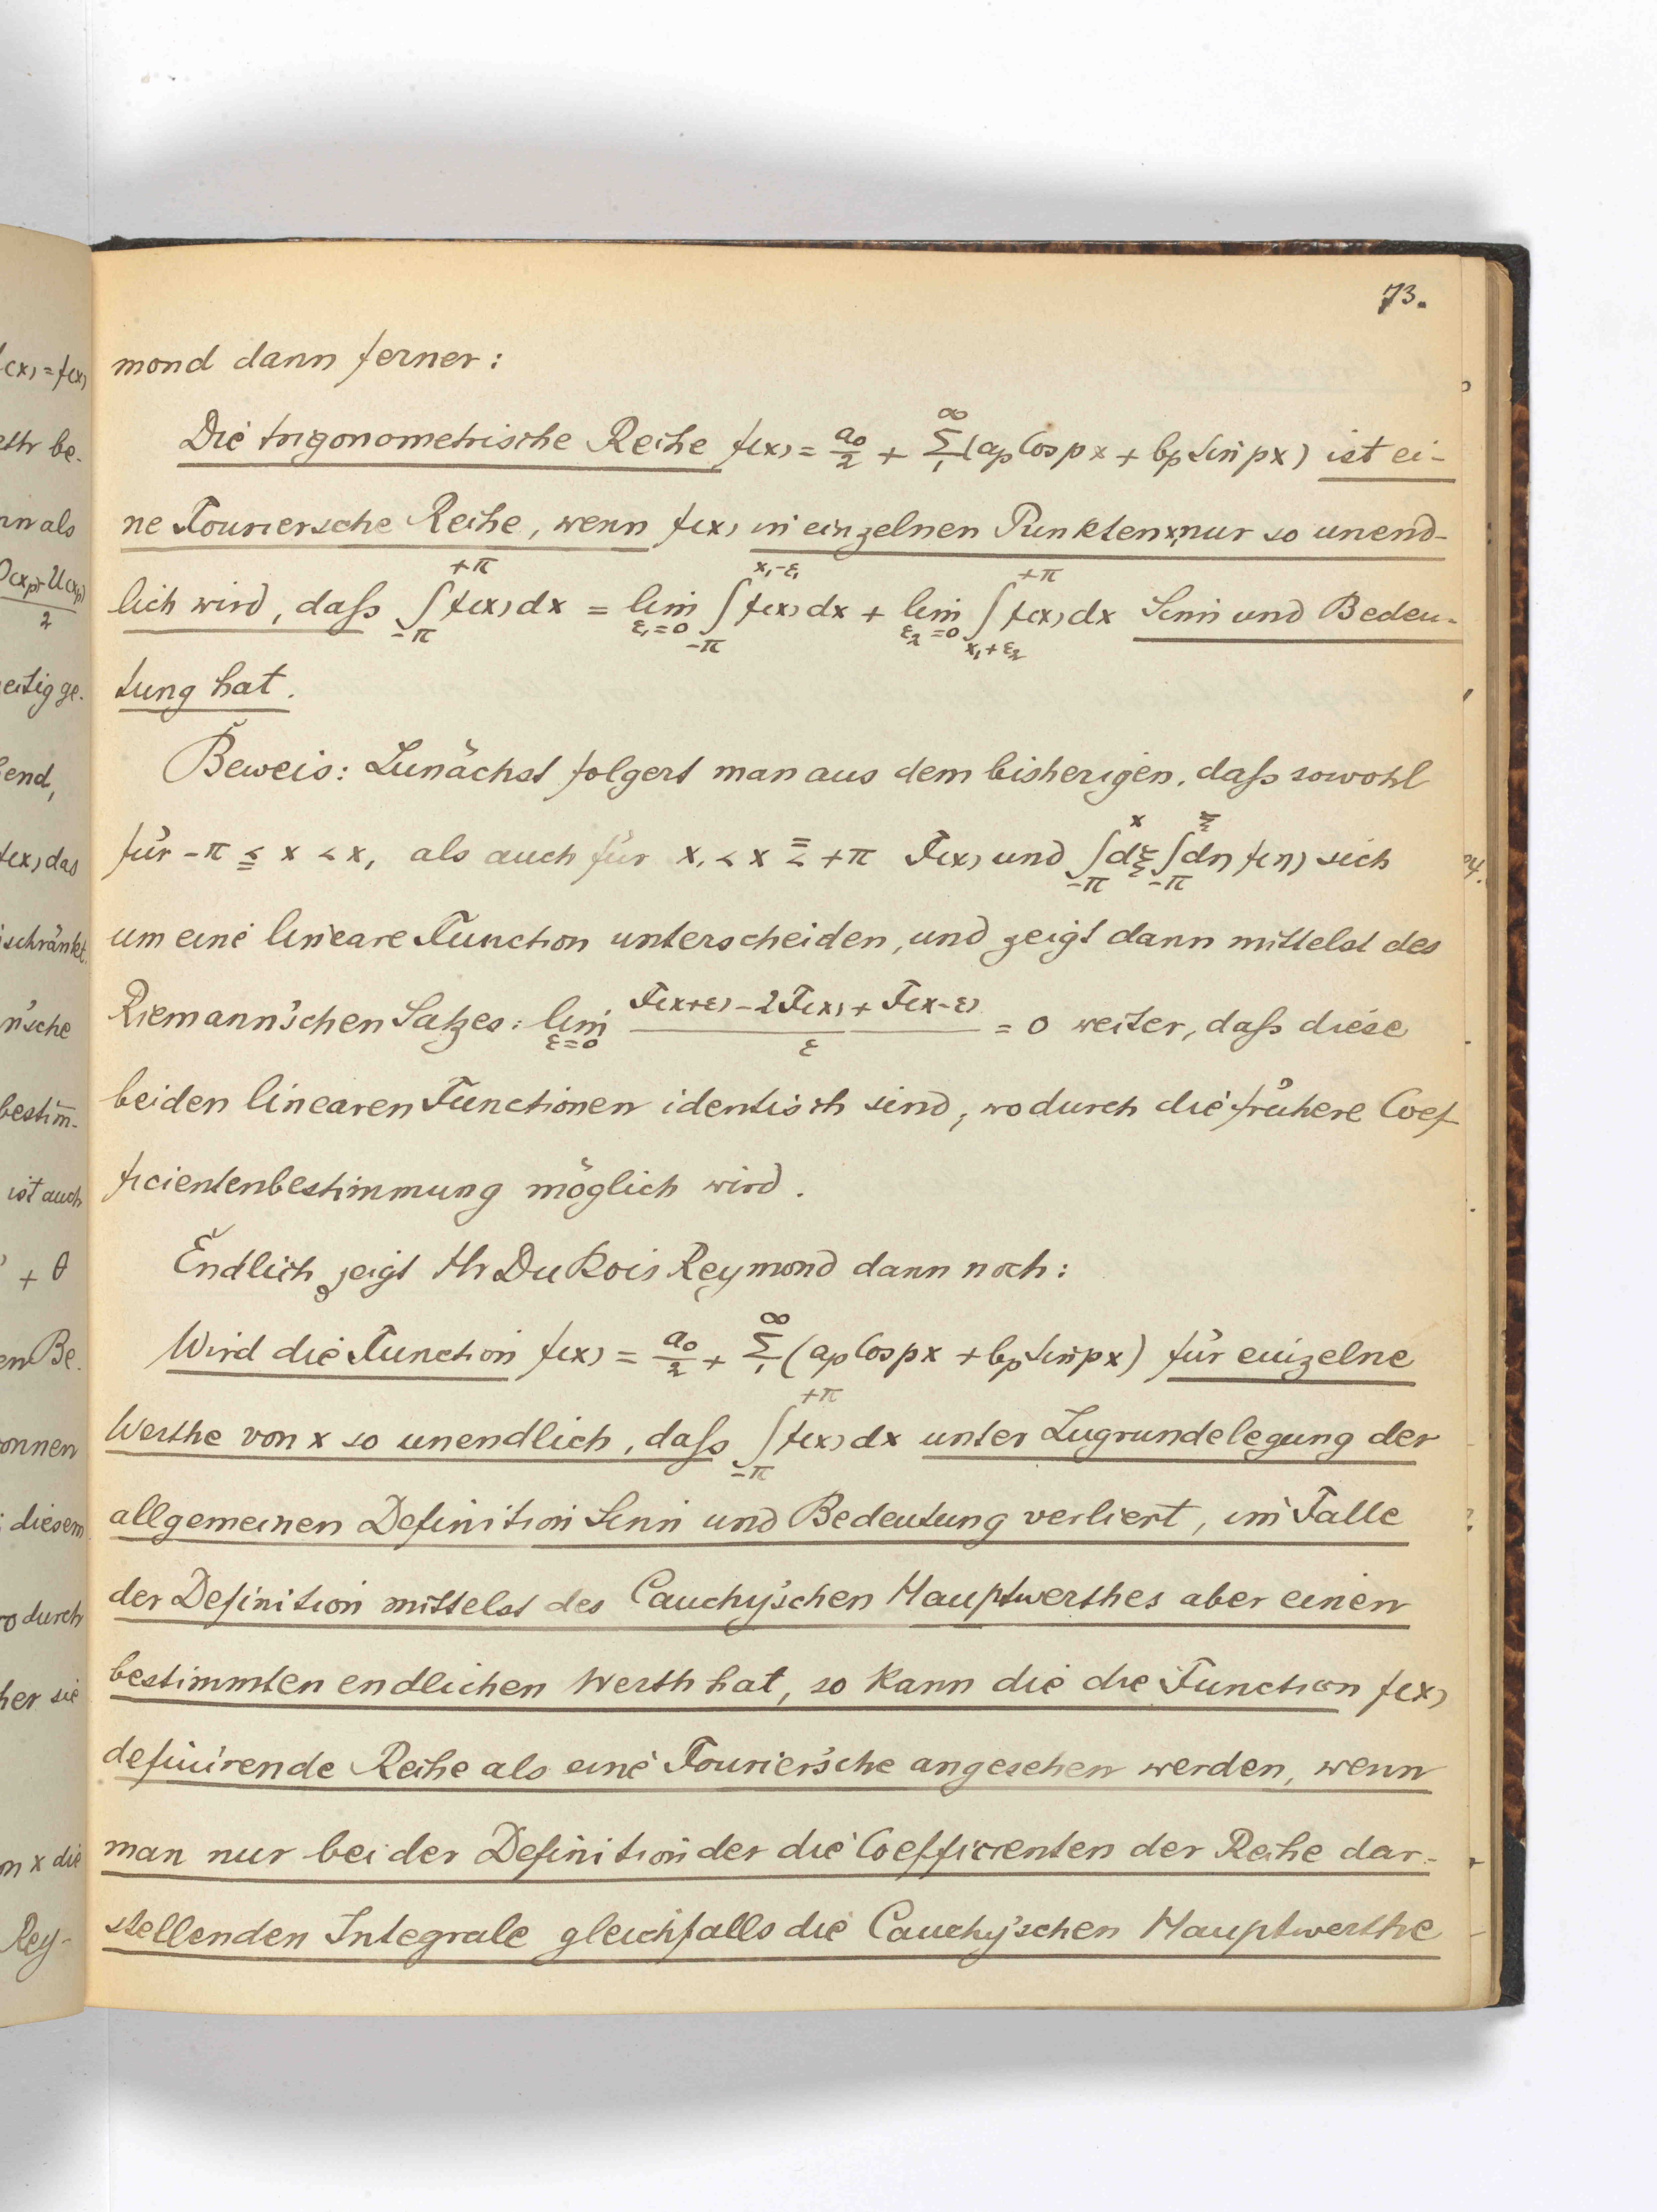 73.
mond dann ferner:
Die trigonometrische Reihe f(x) = a₀/2 + ∞Σ₁ (aₚ Cos px + bₚ Sin px) ist ei-
ne Fouriersche Reihe, wenn f(x) in einzelnen Punkten x₁ nur so unend-
lich wird, daß ∫_{-π}^{+π} f(x) dx = lim_{ε₁=0} ∫_{-π}^{x₁-ε₁} f(x) dx + lim_{ε₂=0} ∫_{x₁+ε₂}^{+π} f(x) dx Sinn und Bedeu-
tung hat.
Beweis: Zunächst folgert man aus dem bisherigen, daß sowohl
für -π ≤ x < x₁ als auch für x₁ < x ≤ +π F(x) und ∫_{-π}^{x} dξ ∫_{-π}^{ξ} dη f(η) sich
um eine lineare Function unterscheiden, und zeigt dann mittelst des
Riemann'schen Satzes: lim_{ε=0} (F(x+ε) - 2F(x) + F(x-ε))/ε = 0 weiter, daß diese
beiden linearen Functionen identisch sind, wodurch die frühere Coef-
ficientenbestimmung möglich wird.
Endlich zeigt Hr Du Bois Reymond dann noch:
Wird die Function f(x) = a₀/2 + ∞Σ₁ (aₚ Cos px + bₚ Sin px) für einzelne
Werthe von x so unendlich, daß ∫_{-π}^{+π} f(x) dx unter Zugrundelegung der
allgemeinen Definition Sinn und Bedeutung verliert, im Falle
der Definition mittelst des Cauchy'schen Hauptwerthes aber einen
bestimmten endlichen Werth hat, so kann die die Function f(x)
definirende Reihe als eine Fourier'sche angesehen werden, wenn
man nur bei der Definition der die Coefficienten der Reihe dar-
stellenden Integrale gleichfalls die Cauchy'schen Hauptwerthe